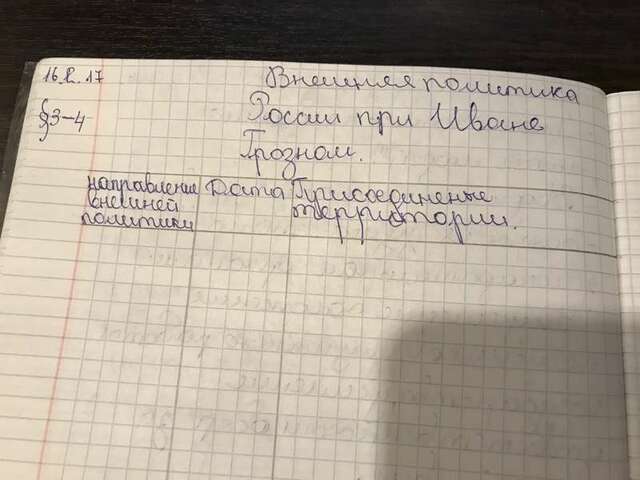 §3-4
Внешняя политика
России при Иване
Грозном.
направление
внешней
политики
Дата
Присоединеные
территории.